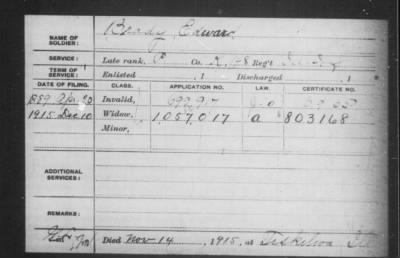 NAME OF SOLDIER: Edward
SERVICE: Late rank, Co. Reg't
TERM OF SERVICE: Enlisted , 1 Discharged , 1
DATE OF FILING. CLASS. APPLICATION NO. LAW. CERTIFICATE NO.
Invalid,
1915 Dec 10 Widow, 1057017 a 803168
Minor,
ADDITIONAL SERVICES:
REMARKS:
Died Nov 14, 1915, at Tiskilwa Ill